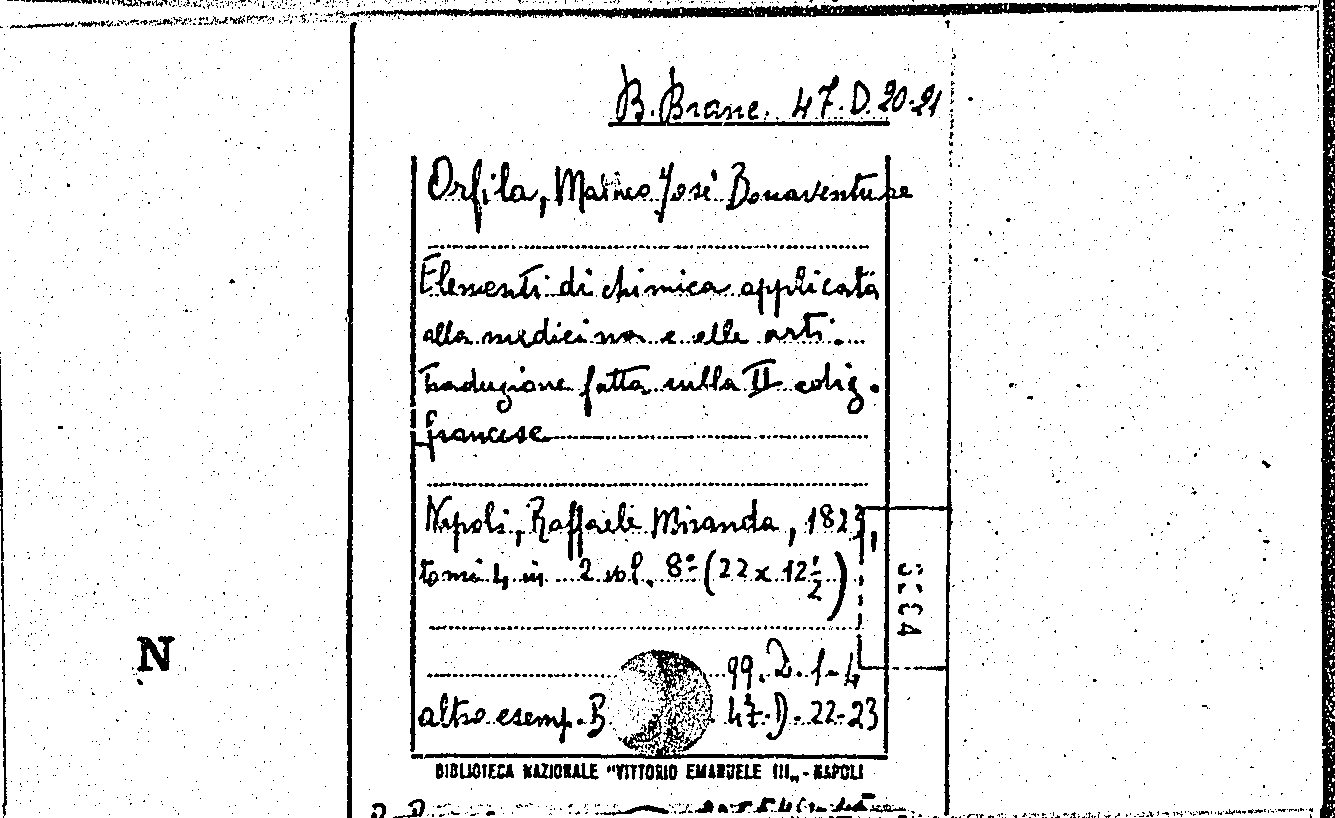 B. Branc. 47.D.20-21
Orfila, Matteo José Bonaventure
Elementi di chimica applicata
alla medicina e alle arti.
Traduzione fatta sulla II ediz.
francese
Napoli, Raffaele Miranda, 1823,
tomi 4 in 2 vol. 8º (22 x 12½)
99.D.1-4
altro esemp. B 47.D.22-23
BIBLIOTECA NAZIONALE "VITTORIO EMANUELE III„ - NAPOLI
N